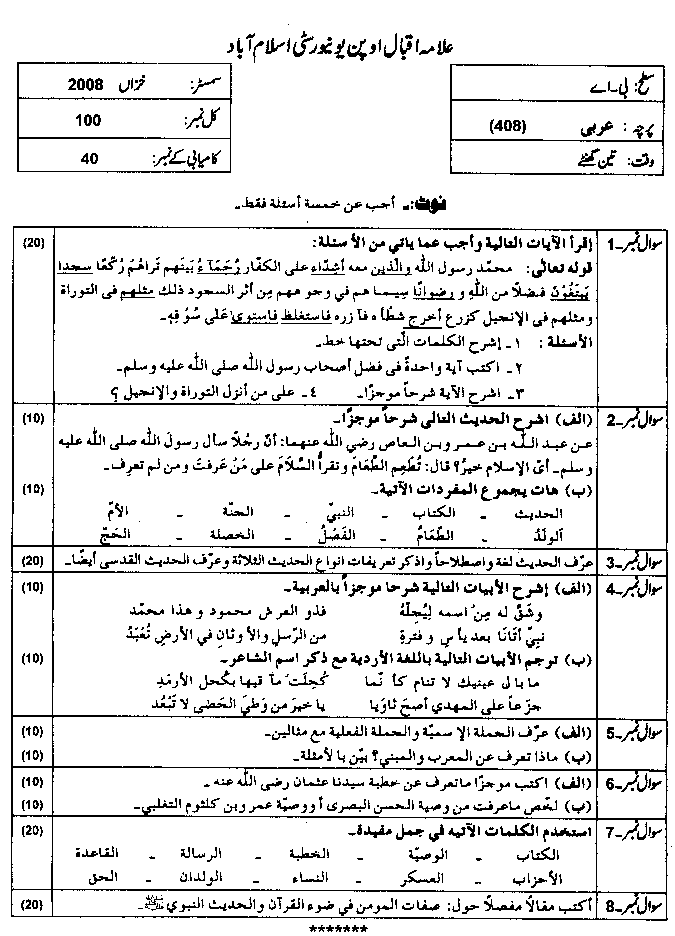 علامہ اقبال اوپن یونیورسٹی اسلام آباد
سطح: بی۔اے
پرچہ: عربی (408)
وقت: تین گھنٹے
سمسٹر: خزاں 2008
کل نمبر: 100
کامیابی کے نمبر: 40
نوٹ:۔ أجب عن خمسة أسئلة فقط۔
سوال نمبر۔1 إقرأ الآيات التالية وأجب عما ياتي من الأسئلة: (20)
قوله تعالٰى: محمّد رسول اللّٰه والّذين معه أشدّاء على الكفّار رُحماءُ بينهم تراهُم ركّعا سجدا
يبتغُوْن فضلاً من اللّٰهِ و رِضوانًا سِيما هم في وجو ههم مِن أثر السجود ذلك مثلهم في التوراة
ومثلهم في الإنجيل كزرع أخرج شطأه فآ زره فاستغلظ فاستوى على سُوقِهٖ۔
الأسئلة: ١۔ إشرح الكلمات الّتي تحتها خط۔
٢۔ اكتب آية واحدةً في فضل أصحاب رسول اللّٰه صلى اللّٰه عليه وسلم۔
٣۔ اشرح الآية شرحاً موجزًا۔ ٤۔ على من أنزل التوراة والإنجيل؟
سوال نمبر۔2 (الف) اشرح الحديث التالى شرحاً موجزًا۔ (10)
عن عبد اللّٰه بن عمر وبن العاص رضي اللّٰه عنهما: أنّ رجُلاً سأل رسولَ اللّٰه صلى اللّٰه عليه
وسلم۔ أيّ الإسلام خيرٌ؟ قال: تُطعِم الطّعَامَ وتقرأُ السَّلَامَ على مَنْ عَرفتَ ومن لم تعرِف۔
(ب) هات بجموع المفردات الآتية۔ (10)
الحديث ۔ الكتاب ۔ النبيّ ۔ الجنّة ۔ الأمّ
الولَدُ ۔ الطّعَامُ ۔ الفَصْلُ ۔ الخصلة ۔ الحَجّ
سوال نمبر۔3 عرّف الحديث لغة واصطلاحاً واذكر تعريفات انواع الحديث الثلاثة وعرّف الحديث القدسى أيضًا۔ (20)
سوال نمبر۔4 (الف) إشرح الأبيات التالية شرحا موجزاً بالعربية۔ (10)
وشقّ له مِنْ اسمه لِيُجِلّهُ فذو العرش محمود و هذا محمّد
نبيّ أتانَا بعد يأسٍ و فترةٍ من الرّسلِ والأوثانِ في الأرضِ تُعْبَدُ
(ب) توجم الأبيات التالية باللغة الأردية مع ذكر اسم الشاعر۔ (10)
ما بال عينيك لا تنام كأ نّما كُحِلَتْ مآ قيها بكُحل الأرمَدِ
جزعاً على المهدي أصبح ثاوِيًا يا خيرَ من وَطِئَ الحَصٰى لا تَبْعُد
سوال نمبر۔5 (الف) عرّف الجملة الإ سميّة والجملة الفعلية مع مثالين۔ (10)
(ب) ماذا تعرف عن المعرب والمبني؟ بيّن بالأمثلة۔ (10)
سوال نمبر۔6 (الف) اكتب موجزًا ماتعرف عن خطبة سيدنا عثمان رضى اللّٰه عنه۔ (10)
(ب) لخّص ماعرفت من وصية الحسن البصرى أو وصيّة عمر وبن كلثوم التغلبي۔ (10)
سوال نمبر۔7 استخدم الكلمات الآتيه في جمل مفيدة۔ (20)
الكتاب ۔ الوصيّة ۔ الخطبة ۔ الرسالة ۔ القاعدة
الأحزاب ۔ العسكر ۔ النساء ۔ الولدان ۔ الحق
سوال نمبر۔8 أكتب مقالاً مفصلاً حول: صفات المومن في ضوء القرآن والحديث النبوي ﷺ۔ (20)
*******